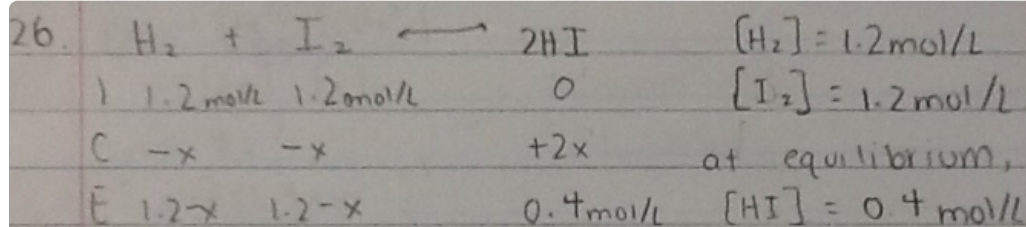 26. H₂ + I₂ ⟷ 2HI [H₂] = 1.2 mol/L
I 1.2 mol/L 1.20 mol/L 0 [I₂] = 1.2 mol/L
C -x -x +2x at equilibrium,
E 1.2-x 1.2-x 0.4 mol/L [HI] = 0.4 mol/L